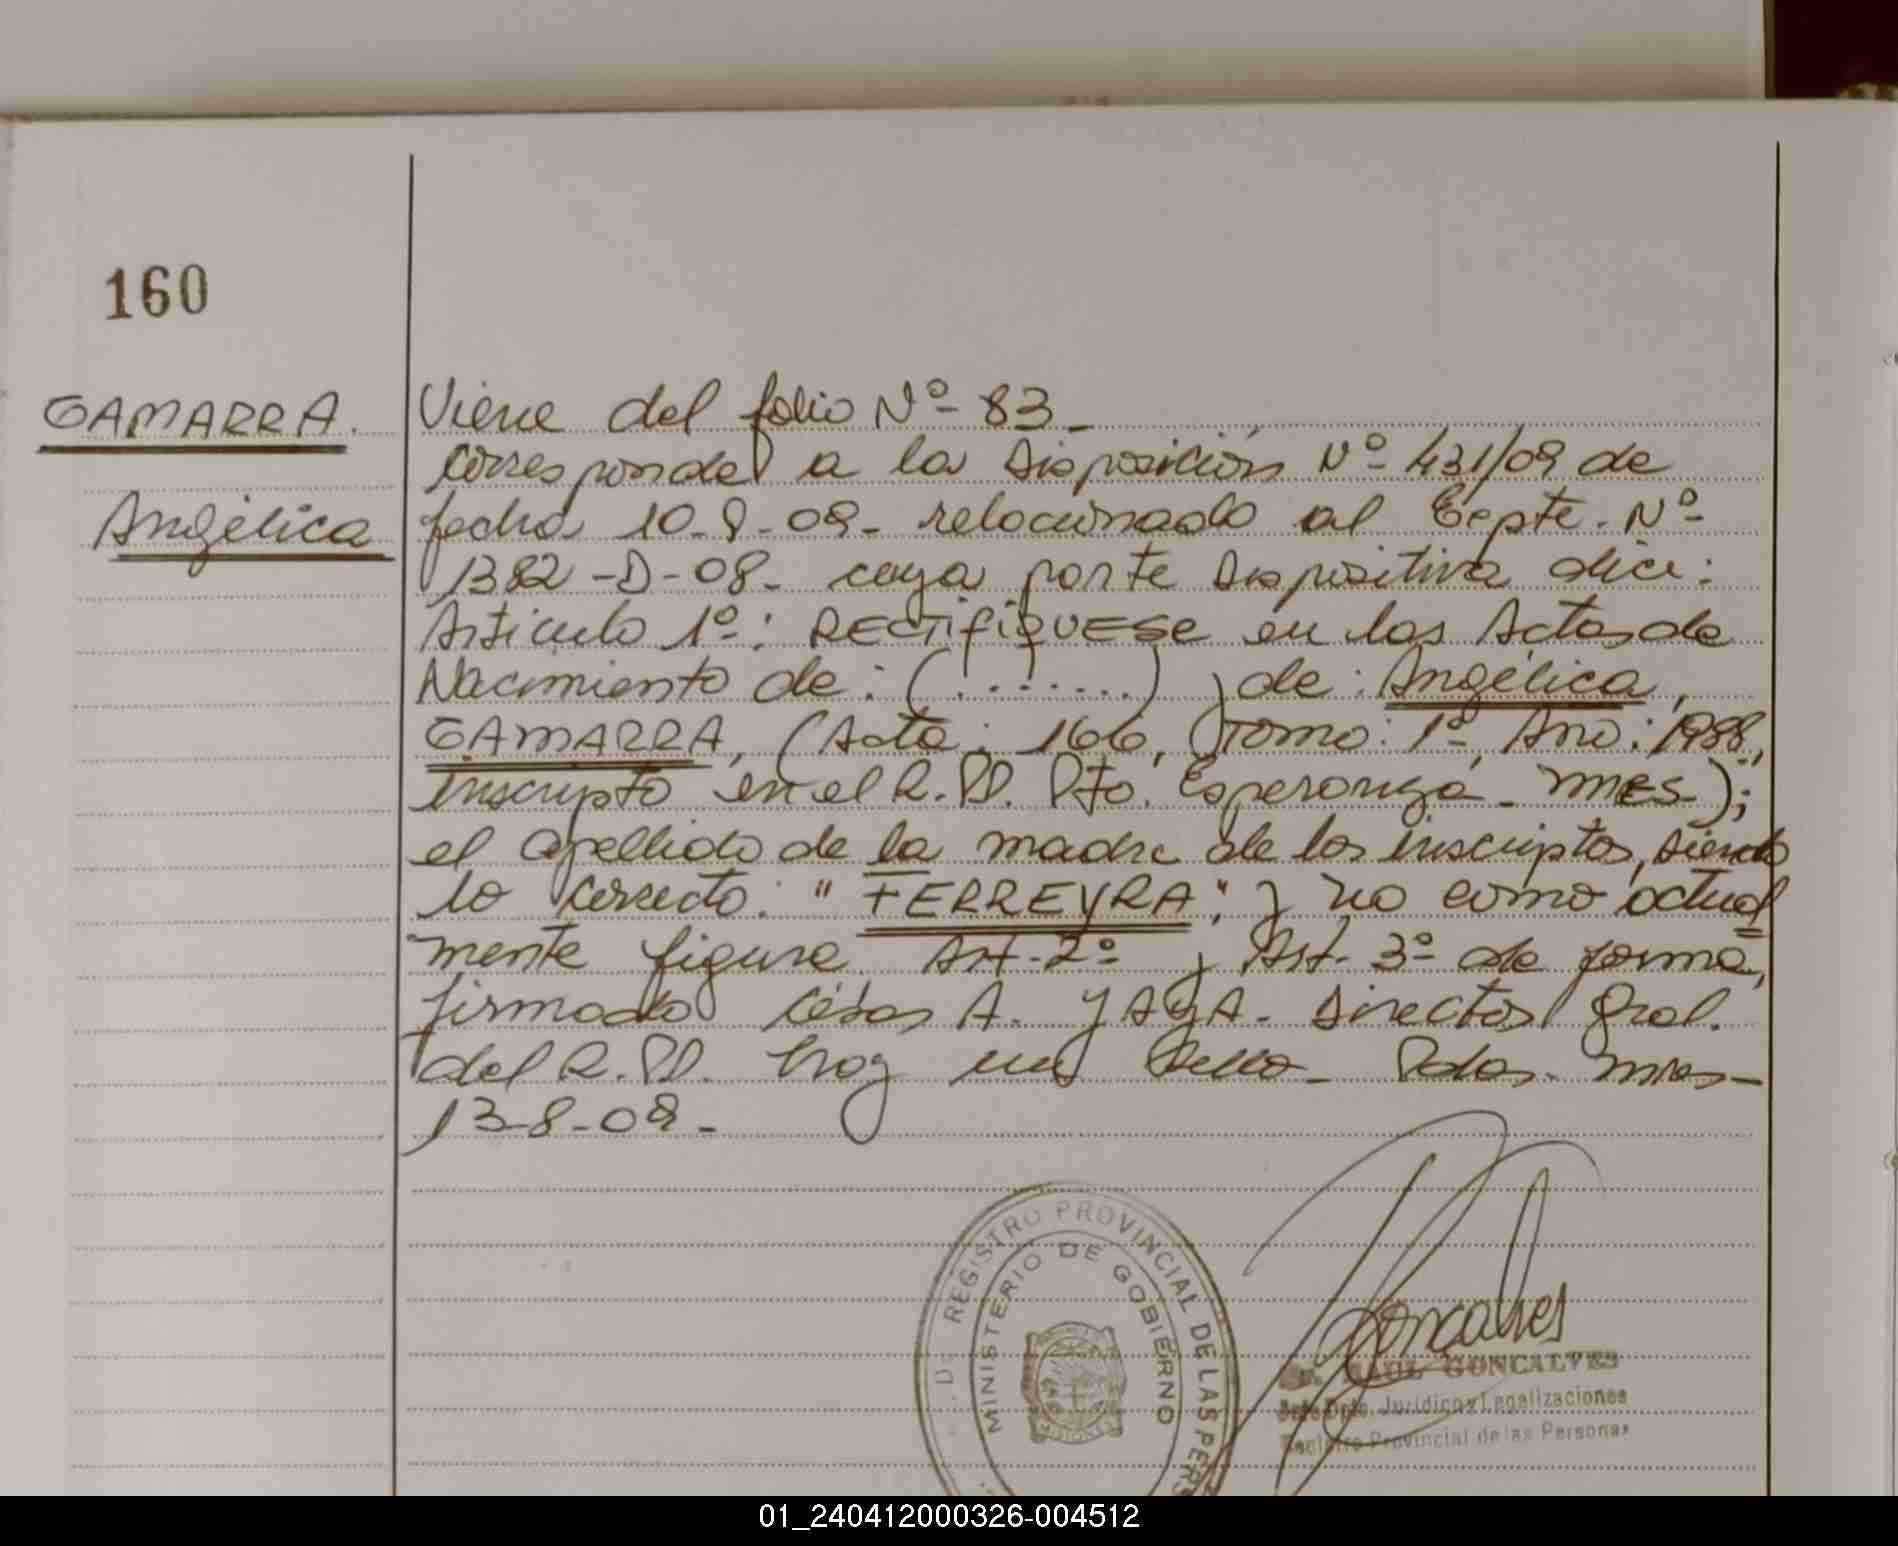 160
GAMARRA.
Angélica
Viene del folio Nº- 83-
corresponde a la Disposición Nº- 431/09 de
fecha 10-8-09- relacionado al Expte. Nº-
1382-D-08- cuya parte Dispositiva dice:
Artículo 1º-: RECTIFIQUESE en las Actas de
Nacimiento de: (.......) y de: Angélica,
GAMARRA, (Acta: 166, Tomo: 1º, Año: 1988,
inscripto en el R.P.P. Pto. Esperanza- Mnes-);
el apellido de la madre de los inscriptos, siendo
lo correcto: "FERREYRA"; y no como actual
mente figura. Art-2º- y Art- 3º- de forma,
firmado César A. YAYA- Director Gral.
del R.P.P. hay un sello- Pdas- mnes-
13-8-09-
DE REGISTRO PROVINCIAL DE LAS PERS
MINISTERIO DE GOBIERNO
MISIONES
Goncalves
RAUL GONCALVES
Jefe Dpto. Jurídico y Legalizaciones
Registro Provincial de las Personas
01_240412000326-004512